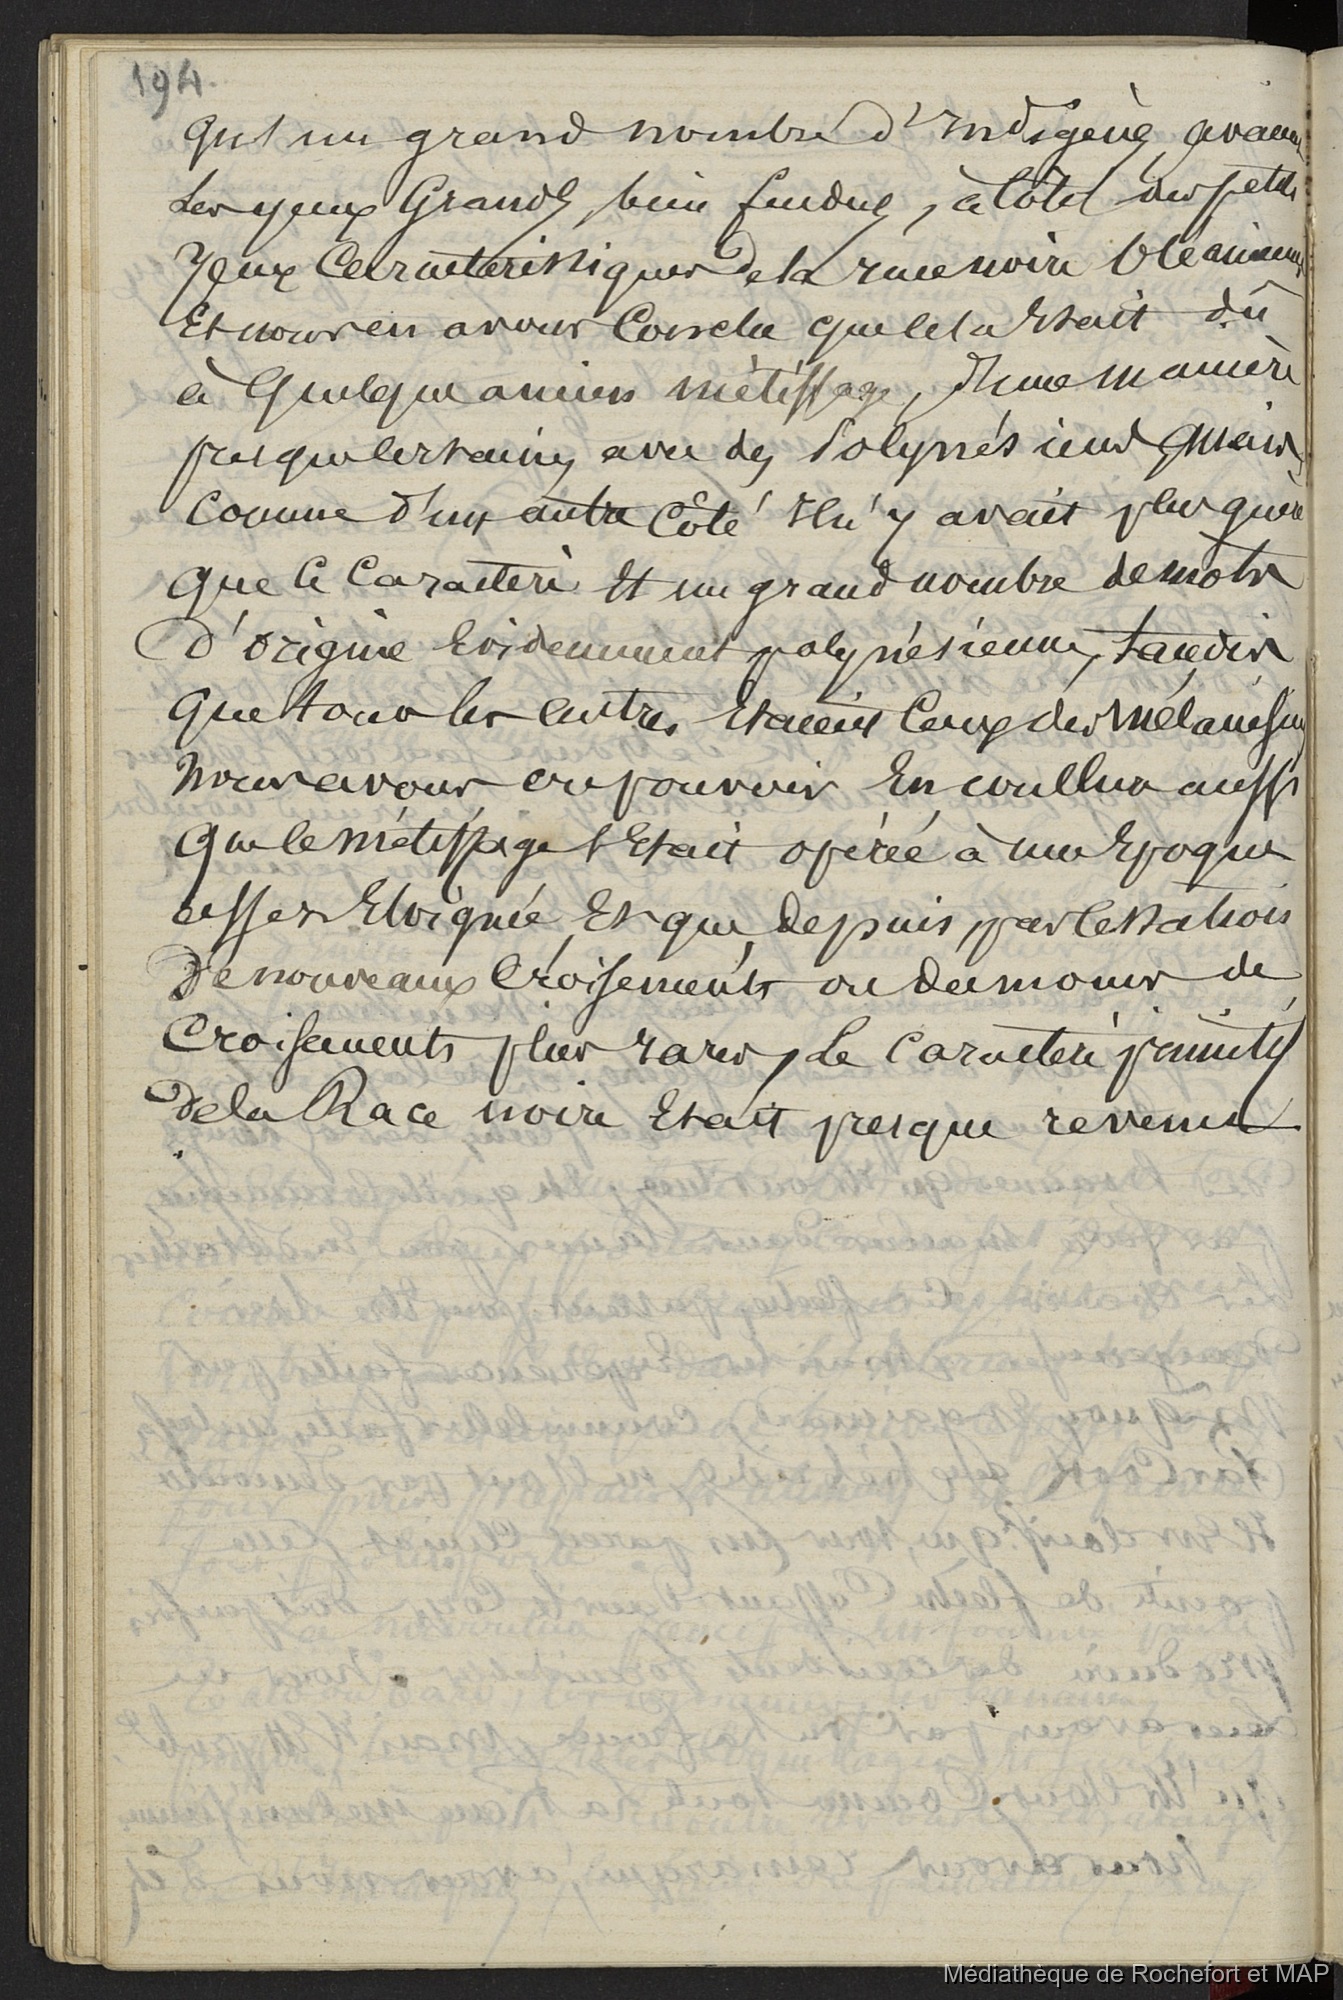 194.
qu'un grand nombre d'indigènes, avaient
les yeux Grands, bien fendus, à côté des petits
yeux Caracteristiques de la race noire Océanienne
Et nous en avons Conclu que cela Etait dû
à quelque ancien métissage, d'une manière
presque certaine, avec des Polynésiens, Mais,
Comme d'un autre Côté Il n'y avait plus guère
que le Caractère Et un grand nombre de mots
d'origine Evidemment polynésienne, tandis
que tous les autres Etaient Ceux des Mélanésiens
Nous avons cru pouvoir En conclure aussi
que le métissage s'Etait opéréé à une Epoque
assez Eloignée, Et que, depuis, par cessation
De nouveaux Croisements ou du moins de
Croisements plus rares, Le Caractère primitif
de la Race noire Etait presque revenu
Médiathèque de Rochefort et MAP